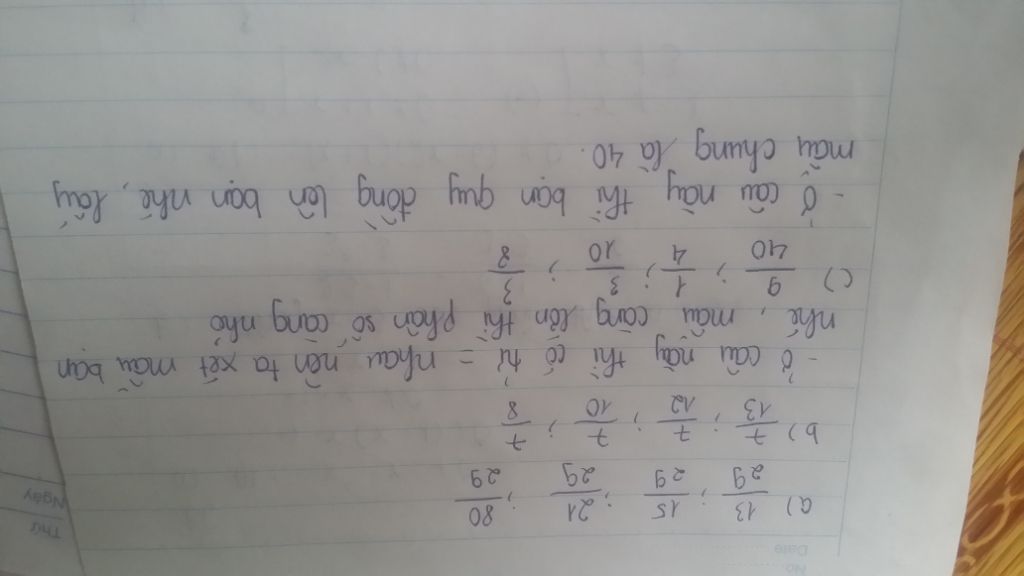 No
Date
Thứ
Ngày
a) 13/29 ; 15/29 ; 21/29 ; 80/29
b) 7/13 ; 7/12 ; 7/10 ; 7/8
- Ở câu này thì có tử = nhau nên ta xét mẫu bạn
nhé, mẫu càng lớn thì phân số càng nhỏ
c) 9/40 ; 1/4 ; 3/10 ; 3/8
- Ở câu này thì bạn quy đồng lên bạn nhé, lấy
mẫu chung là 40.